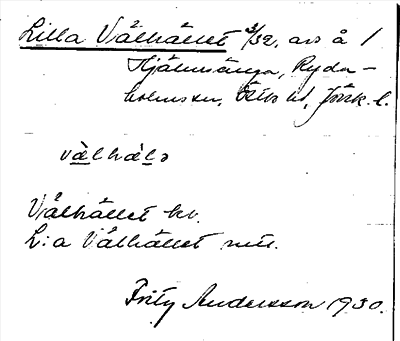 Lilla Vålhället 3/32, avs å 1
Hjälmsänga, Ryda-
holms sn, Östbo hd, Jönk. l.
vàlhàlə
Vålhället kv.
L:a Vålhället mtl.
Frity Andersson 1930.